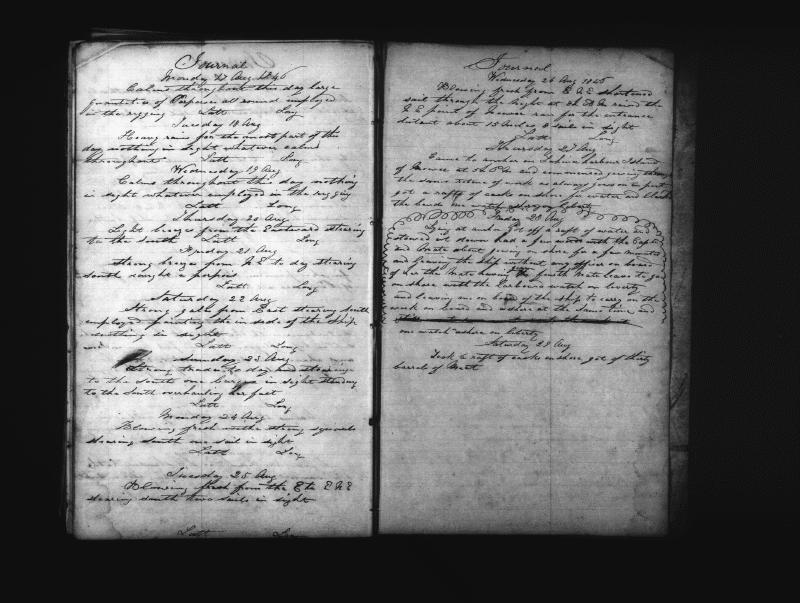 Journal
Monday 17 Aug 1846
Calms throughout this day large
quantities of Porpoises all round employed
in the rigging Latt Long
Tuesday 18 Aug
Heavy rain for the most part of the
day nothing in sight whatever calms
throughout Latt Long
Wednesday 19 Aug
Calms throughout this day nothing
in sight whatever employed in the rigging
Latt Long
Thursday 20 Aug
Light breeze from the Eastward steering
to the South Latt Long
Fryday 21 Aug
Strong breeze from to day steering
South caught a porpois
Latt Long
Saturday 22 Aug
Strong gale from East steering South
employed painting the in side of the Ship
nothing in sight
Latt Long
Sunday 23 Aug
Strong trades to day and steering
to the South one in sight standing
to the South overhauling her fast
Latt Long
Monday 24 Aug
Blowing fresh with strong squalls
stearing South one sail in sight
Latt Long
Tuesday 25 Aug
Blowing fresh from the E to
stearing South two sails in sight
Latt Long
Journal
Wednesday 26 Aug 1846
Blowing fresh from shortened
sail through the night at raised the
point of run for the entrance
distant about 15 miles 3 sails in sight
Latt Long
Thursday 27 Aug
Came to anchor in Harbour Island
of at and commenced
the same of work as always goes on in port
got a raft of casks on shore for water and
the heads one watch ashore on liberty
Friday 28 Aug
Lay at anchor Got off a raft of water and
stowed it down had a few words with the Capt
and Mate about going on shore for a few minutes
and leaving the Ship without any officer on board
of her the Mate having the fourth Mate leave to go
on shore with the Larboard watch on liberty
and leaving me on board of the ship to carry on the
work on board and ashore at the same time and
one watch ashore on liberty
Saturday 29 Aug
Took a raft of casks on shore got of thirty
barrels of